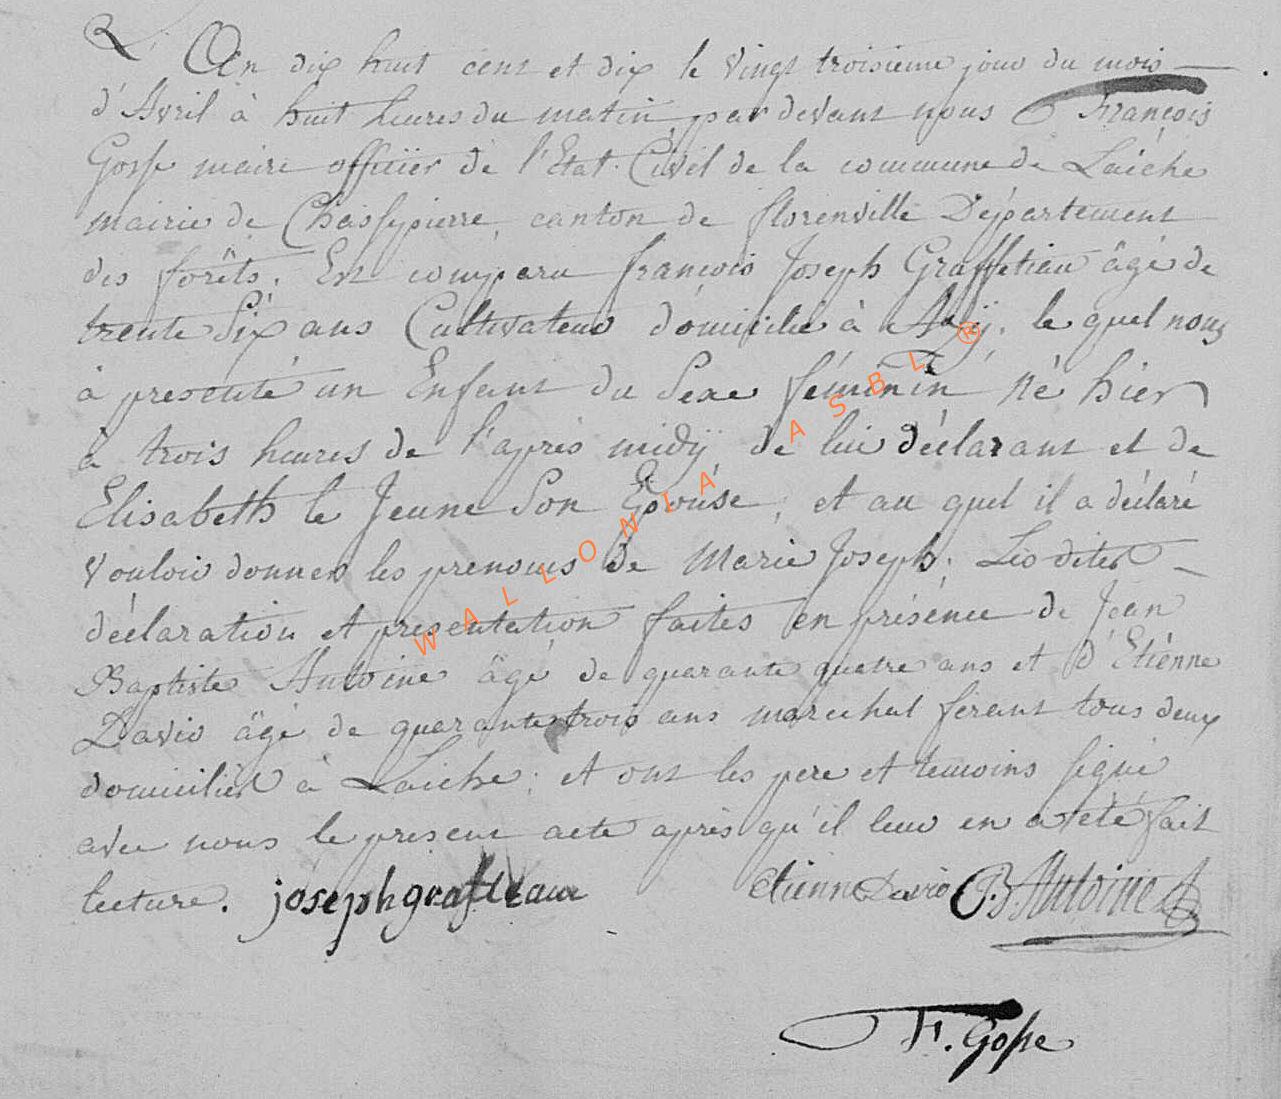 L'An dix huit cent et dix le vingt troisieme jour du mois
d'Avril à huit heures du matin, par devant nous François
Gosse maire officier de l'Etat Civil de la commune de Laiche
mairie de Chassepierre, canton de florenville Département
des forêts. Est comparu françois Joseph Graffetiau âgé de
trente Six ans Cultivateur domicilié à, le quel nous
à presenté un Enfant du Sexe féminin né hier
à trois heures de l'aprés midÿ de lui déclarant et de
Elisabeth le Jeune Son Epouse, et au quel il a déclaré
vouloir donner les prenoms de Marie Joseph. Les dites
déclaration et presentation faites en présence de Jean
Baptiste Antoine âgé de quarante quatre ans et d'Etiénne
David âgé de quarante trois ans marechal ferant tous deux
domiciliés à Laiche; et ont les pere et temoins signé
avec nous le present acte après qu'il leur en a été fait
lecture. joseph grafteaux etienne David B. Antoine
F. Gosse
WALLONIA ASBL ®